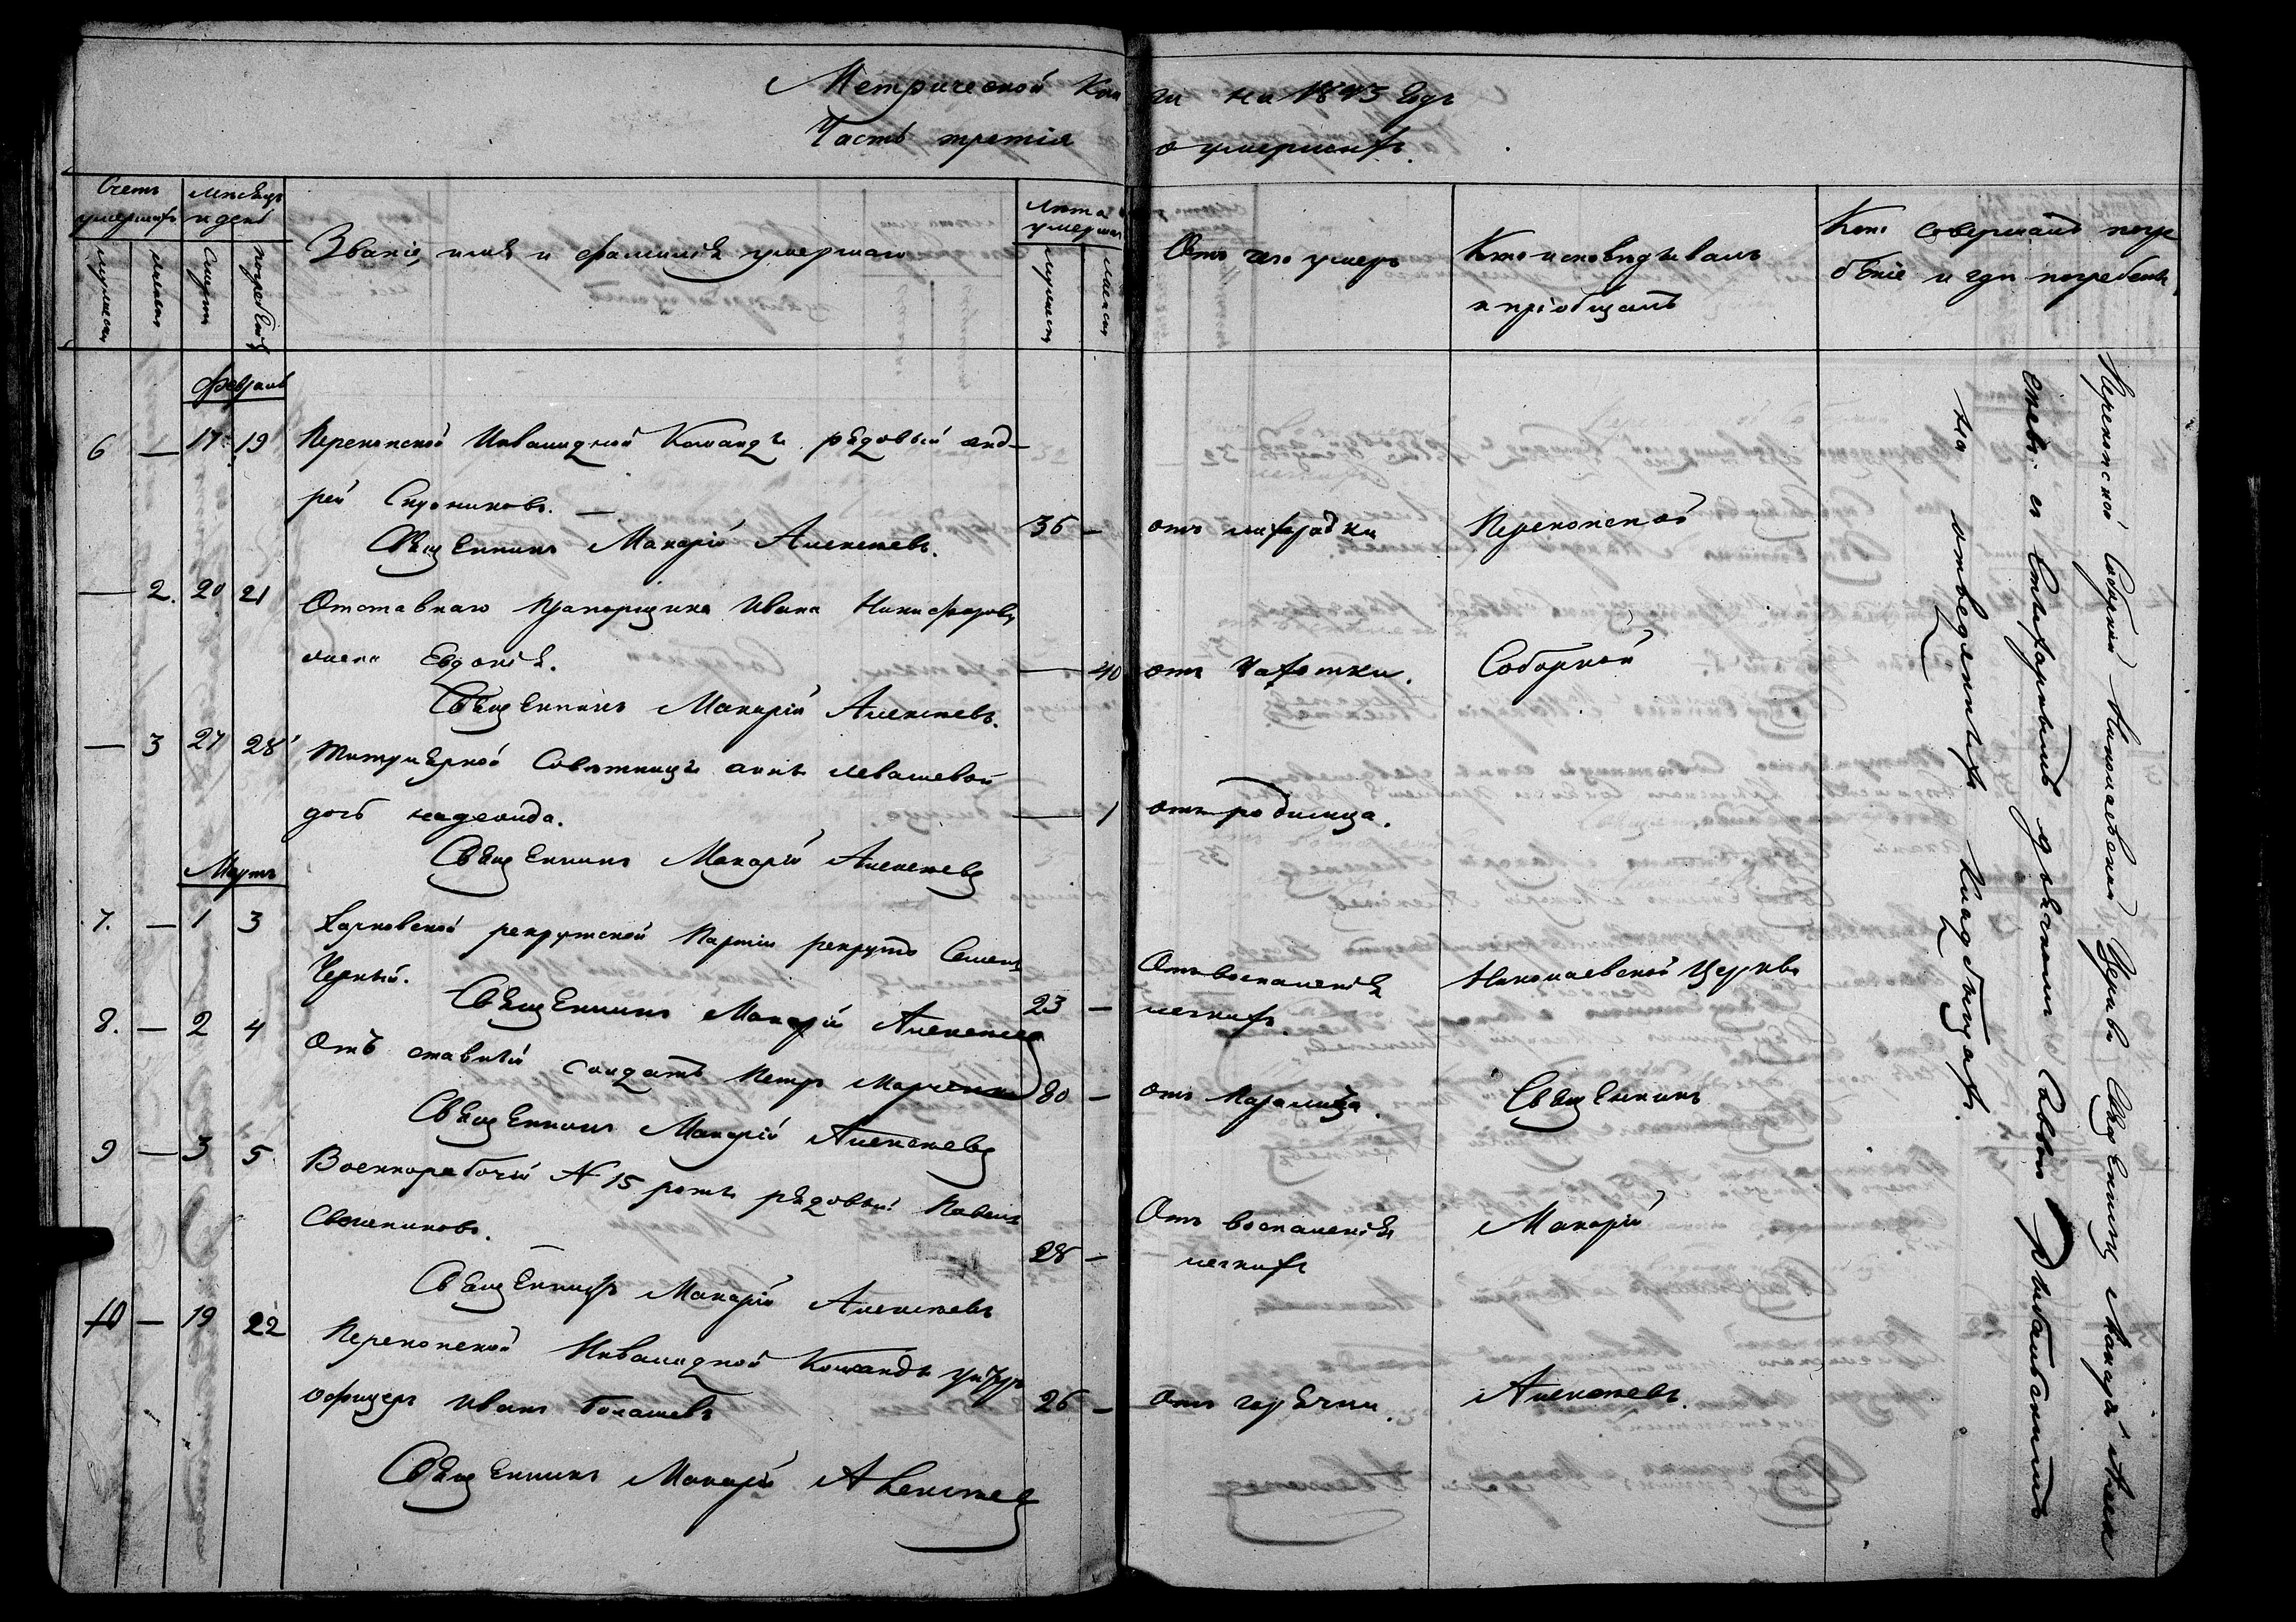 Метрической Книги на 1843 Годъ
Часть третія о умершихъ.
Счетъ умершихъ
мѣсяцъ и день
Званіе, имя и фамилія умершаго
лѣта умершаго
Отъ чего умеръ
Кто исповѣдывалъ и пріобщалъ
Кто совершалъ погребѣніе и гдѣ погребены
мужеска
женска
Смерти
погребенія
мужеска
женска
февраль
6 — 17. 19 Перекопской Инвалидной Команды рядовый Анд-
рей Скрониковъ. — 36 — отъ лихорадки Перекопской
Священникъ Макарій Алексѣевъ.
— 2. 20 21 Отставнаго Прапорщика Ивана Никифорова
жена Евдокія. — 40 отъ Чахотки. Соборной
Священникъ Макарій Алексѣевъ.
— 3 27 28 Титулярной Совѣтницы анны левашевой
дочь надежда. — 1 отъ родимца.
Священникъ Макарій Алексѣевъ
Мартъ
7. — 1 3 Харковской рекрутской Партіи рекрутъ Семенъ
Черный. 23 — Отъ воспаленія легкихъ. Николаевской Церкви
Священникъ Макарій Алексѣевъ
8. — 2 4 Отъ ставный солдатъ Петръ Марченко 80 — отъ Паралича. Священникъ
Священникъ Макарій Алексѣевъ
9 — 3 5 Военнорабочій № 15 роты рядовый Павелъ
Свешниковъ. 28 — Отъ воспаленія легкихъ Макарій
Священникъ Макарій Алексѣевъ
10 — 19 22 Перекопской Инвалидной Команды унтеръ
офицеръ Иванъ Болашевъ 26 — Отъ горячки. Алексѣевъ.
Священникъ Макарій Алексѣевъ
Перекопской Соборной Николаевской Церкви Священникъ Макарій Алек
сѣевъ съ Стихарнымъ дьячкомъ Саввою
на отведенныхъ Кладбищахъ.